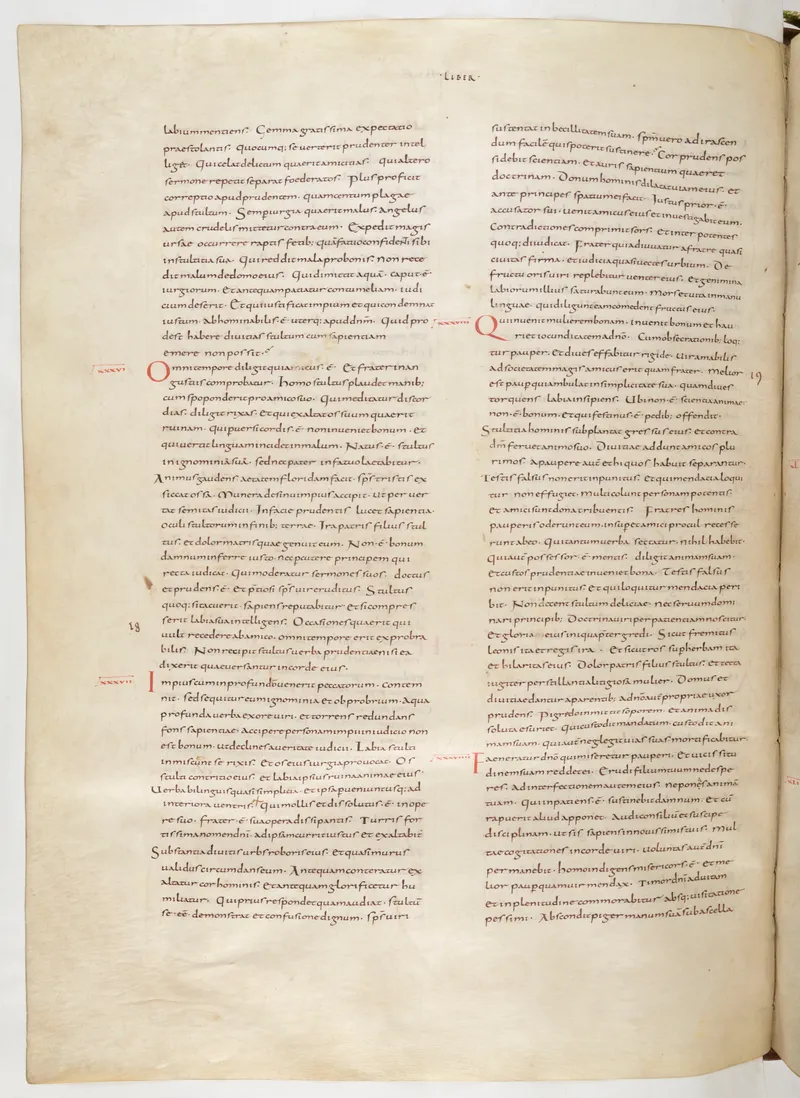 ·LIBER·
labium mentiens. Gemma gratissima expectatio
praestolantis. quocumq; se uerterit prudenter intel
ligit. Qui celat delictum quaerit amicitias. qui altero
sermone repetit separat foederatos. Plus proficit
correptio apud prudentem. quam centum plagae
apud stultum. Semper iurgia quaerit malus. Angelus
autem crudelis mittetur contra eum. Expedit magis
ursae occurrere raptis fetib; quā fatuo confidenti sibi
in stultitia sua. Qui reddit mala pro bonis. Non rece
dit malum de domo eius. Qui dimittit aquā. caput ē
iurgiorum. Et antequam patiatur contumeliam. iudi
cium deserit. Et qui iustificat impium et qui condemnat
iustum. Abhominabilis ē uterq; apud dnm. Quid pro
dest habere diuitias stultum cum sapientiam
emere non possit.
XXXVI Omni tempore diligit qui amicus ē. Et frater in an
gustiis comprobatur. Homo stultus plaudet manib;
cum spoponderit pro amico suo. Qui meditatur discor
dias. diligit rixas. Et qui exaltat os suum quaerit
ruinam. qui peruersi cordis ē non inueniet bonum. et
qui uertit linguam incidet in malum. Natus ē stultus
in ignominiā suā. sed nec pater in fatuo laetabitur.
Animus gaudens aetatem floridam facit. sps tristis ex
siccat ossa. Munera de sinu impius accipit. ut peruer
tat semitas iudicii. In facie prudentis lucet sapientia.
oculi stultorum in finib; terrae. Ira patris filius stul
tus. et dolor matris quae genuit eum. Non ē bonum
damnum inferre iusto. nec percutere principem qui
recta iudicat. Qui moderatur sermones suos. doctus
et prudens ē. Et pretiosi sps uir eruditus. Stultus
quoq; si tacuerit. sapiens reputabitur et si compres
serit labia sua intellegens. Occasiones quaerit qui
18 uult recedere ab amico. omni tempore erit exprobra
bilis. Non recipit stultus uerba prudentiae nisi ea
dixeris quae uersantur in corde eius.
XXXVII Impius cum in profundū uenerit peccatorum. contem
nit. sed sequitur eum ignominia et obprobrium. Aqua
profunda uerba ex ore uiri. et torrens redundans
fons sapientiae. Accipere personam impii in iudicio non
est bonum. ut declines a ueritate iudicii. Labia stulti
inmiscunt se rixis. Et os eius iurgia prouocat. Os
stulti contritio eius. et labia ipsius ruina animae eius.
Verba bilinguis quasi simplicia. et ipsa perueniunt usq; ad
interiora uentris. Qui mollis et dissolutus ē in ope
re suo. frater ē sua opera dissipantis. Turris for
tissima nomen dni. ad ipsam currit iustus et exaltabit
Substantia diuitis urbs roboris eius. et quasi murus
ualidus circumdans eum. Antequam conteratur ex
altatur cor hominis. Et antequam glorificetur hu
miliatur. Qui prius respondet quam audiat. stultū
se eē demonstrat et confusione dignum. sps uiri
sustentat inbecillitatem suam. spm uero ad irascen
dum facilē quis poterit sustinere. Cor prudens pos
sidebit scientiam. et auris sapientium quaeret
doctrinam. Donum hominis dilatat uiam eius. et
ante principes spatium ei facit. Iustus prior ē
accusator sui. uenit amicus eius et inuestigabit eum.
Contradictiones comprimit sors. et inter potentes
quoq; diiudicat. Frater qui adiuuatur a fratre quasi
ciuitas firma. et iudicia quasi uectes urbium. De
fructu oris uiri replebitur uenter eius. et genimina
labiorum illius saturabunt eum. Mors et uita in manu
linguae. qui diligunt eam comedent fructus eius.
XXXVIII Qui inuenit mulierem bonam. inuenit bonum et hau
riet iocunditatem a dnō. Cum obsecrationib; loq;
tur pauper. et diues effabitur rigide. Uir amabilis
ad societatem magis amicus erit quam frater. Melior 19
est pauper qui ambulat in simplicitate sua. quam diues
torquens labia insipiens. Ubi non ē scientia animae
non ē bonum. et qui festinus ē pedib; offendit.
Stultitia hominis subplantat gressus eius. et contra
dm feruet animo suo. Diuitiae addunt amicos plu
rimos. a paupere autē et hi quos habuit separantur.
Testis falsus non erit inpunitus. et qui mendacia loqui
tur non effugiet. multi colunt personam potentis.
et amici sunt dona tribuentis. Fratres hominis
pauperis oderunt eum. insuper et amici procul recesse
runt ab eo. Qui tantum uerba sectatur. nihil habebit.
qui autē possessor ē mentis. diligit animam suam.
et custos prudentiae inueniet bona. Testis falsus
non erit inpunitus. et qui loquitur mendacia peri
bit. Non decent stultum deliciae. nec seruum domi
nari principib; Doctrina uiri per patientiam noscitur.
et gloria eius iniqua praetergredi. Sicut fremitus
leonis ita et regis ira. et sicut ros super herbam ita
et hilaritas eius. Dolor patris filius stultus. et tecta
iugiter perstillantia litigiosa mulier. Domus et
diuitiae dantur a parentib; a dnō autē proprie uxor
prudens. Pigredo inmittit soporem. et anima dis
soluta esuriet. Qui custodit mandatum. custodit ani
mam suam. qui autē neglegit uias suas mortificabitur.
XXXVIIII Faeneratur dnō qui miseretur pauperi. et uicissitu
dinem suam reddet ei. Erudi filium tuum ne despe
res. Ad interfectionem autem eius ne ponas animā
tuam. Qui inpatiens ē. sustinebit damnum. Et cū
rapuerit aliud apponet. Audi consilium et suscipe
disciplinam. ut sis sapiens in nouissimis tuis. Mul
tae cogitationes in corde uiri. uoluntas autē dni
permanebit. homo indigens misericors ē. et me
lior pauper quam uir mendax. Timor dni ad uitam
et in plenitudine commorabitur absq; uisitatione
pessimi. Abscondit piger manum suā sub ascella